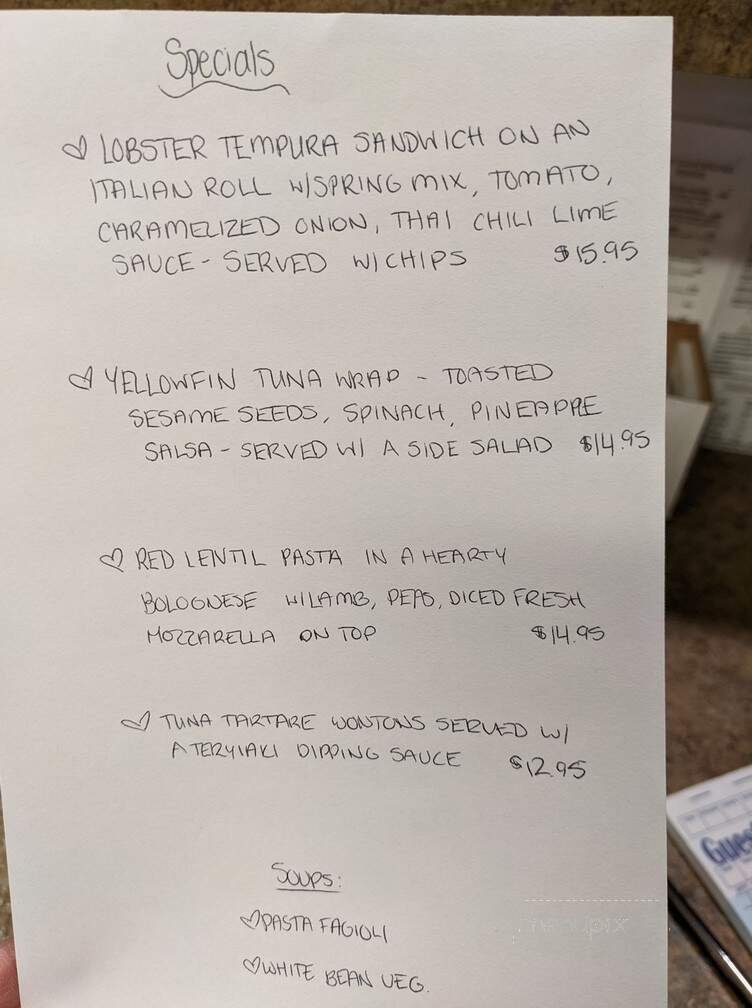 Specials
♡ LOBSTER TEMPURA SANDWICH ON AN
ITALIAN ROLL W/SPRING MIX, TOMATO,
CARAMELIZED ONION, THAI CHILI LIME
SAUCE - SERVED W/CHIPS $15.95
♡ YELLOWFIN TUNA WRAP - TOASTED
SESAME SEEDS, SPINACH, PINEAPPRE
SALSA - SERVED W/ A SIDE SALAD $14.95
♡ RED LENTIL PASTA IN A HEARTY
BOLOGNESE W/LAMB, PEAS, DICED FRESH
MOZZARELLA ON TOP $14.95
♡ TUNA TARTARE WONTONS SERVED W/
A TERYIAKI DIPPING SAUCE $12.95
SOUPS:
♡PASTA FAGIOLI
♡WHITE BEAN VEG.
menupix